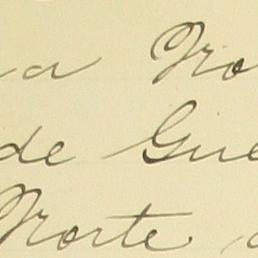 a No
de Gue
Norte